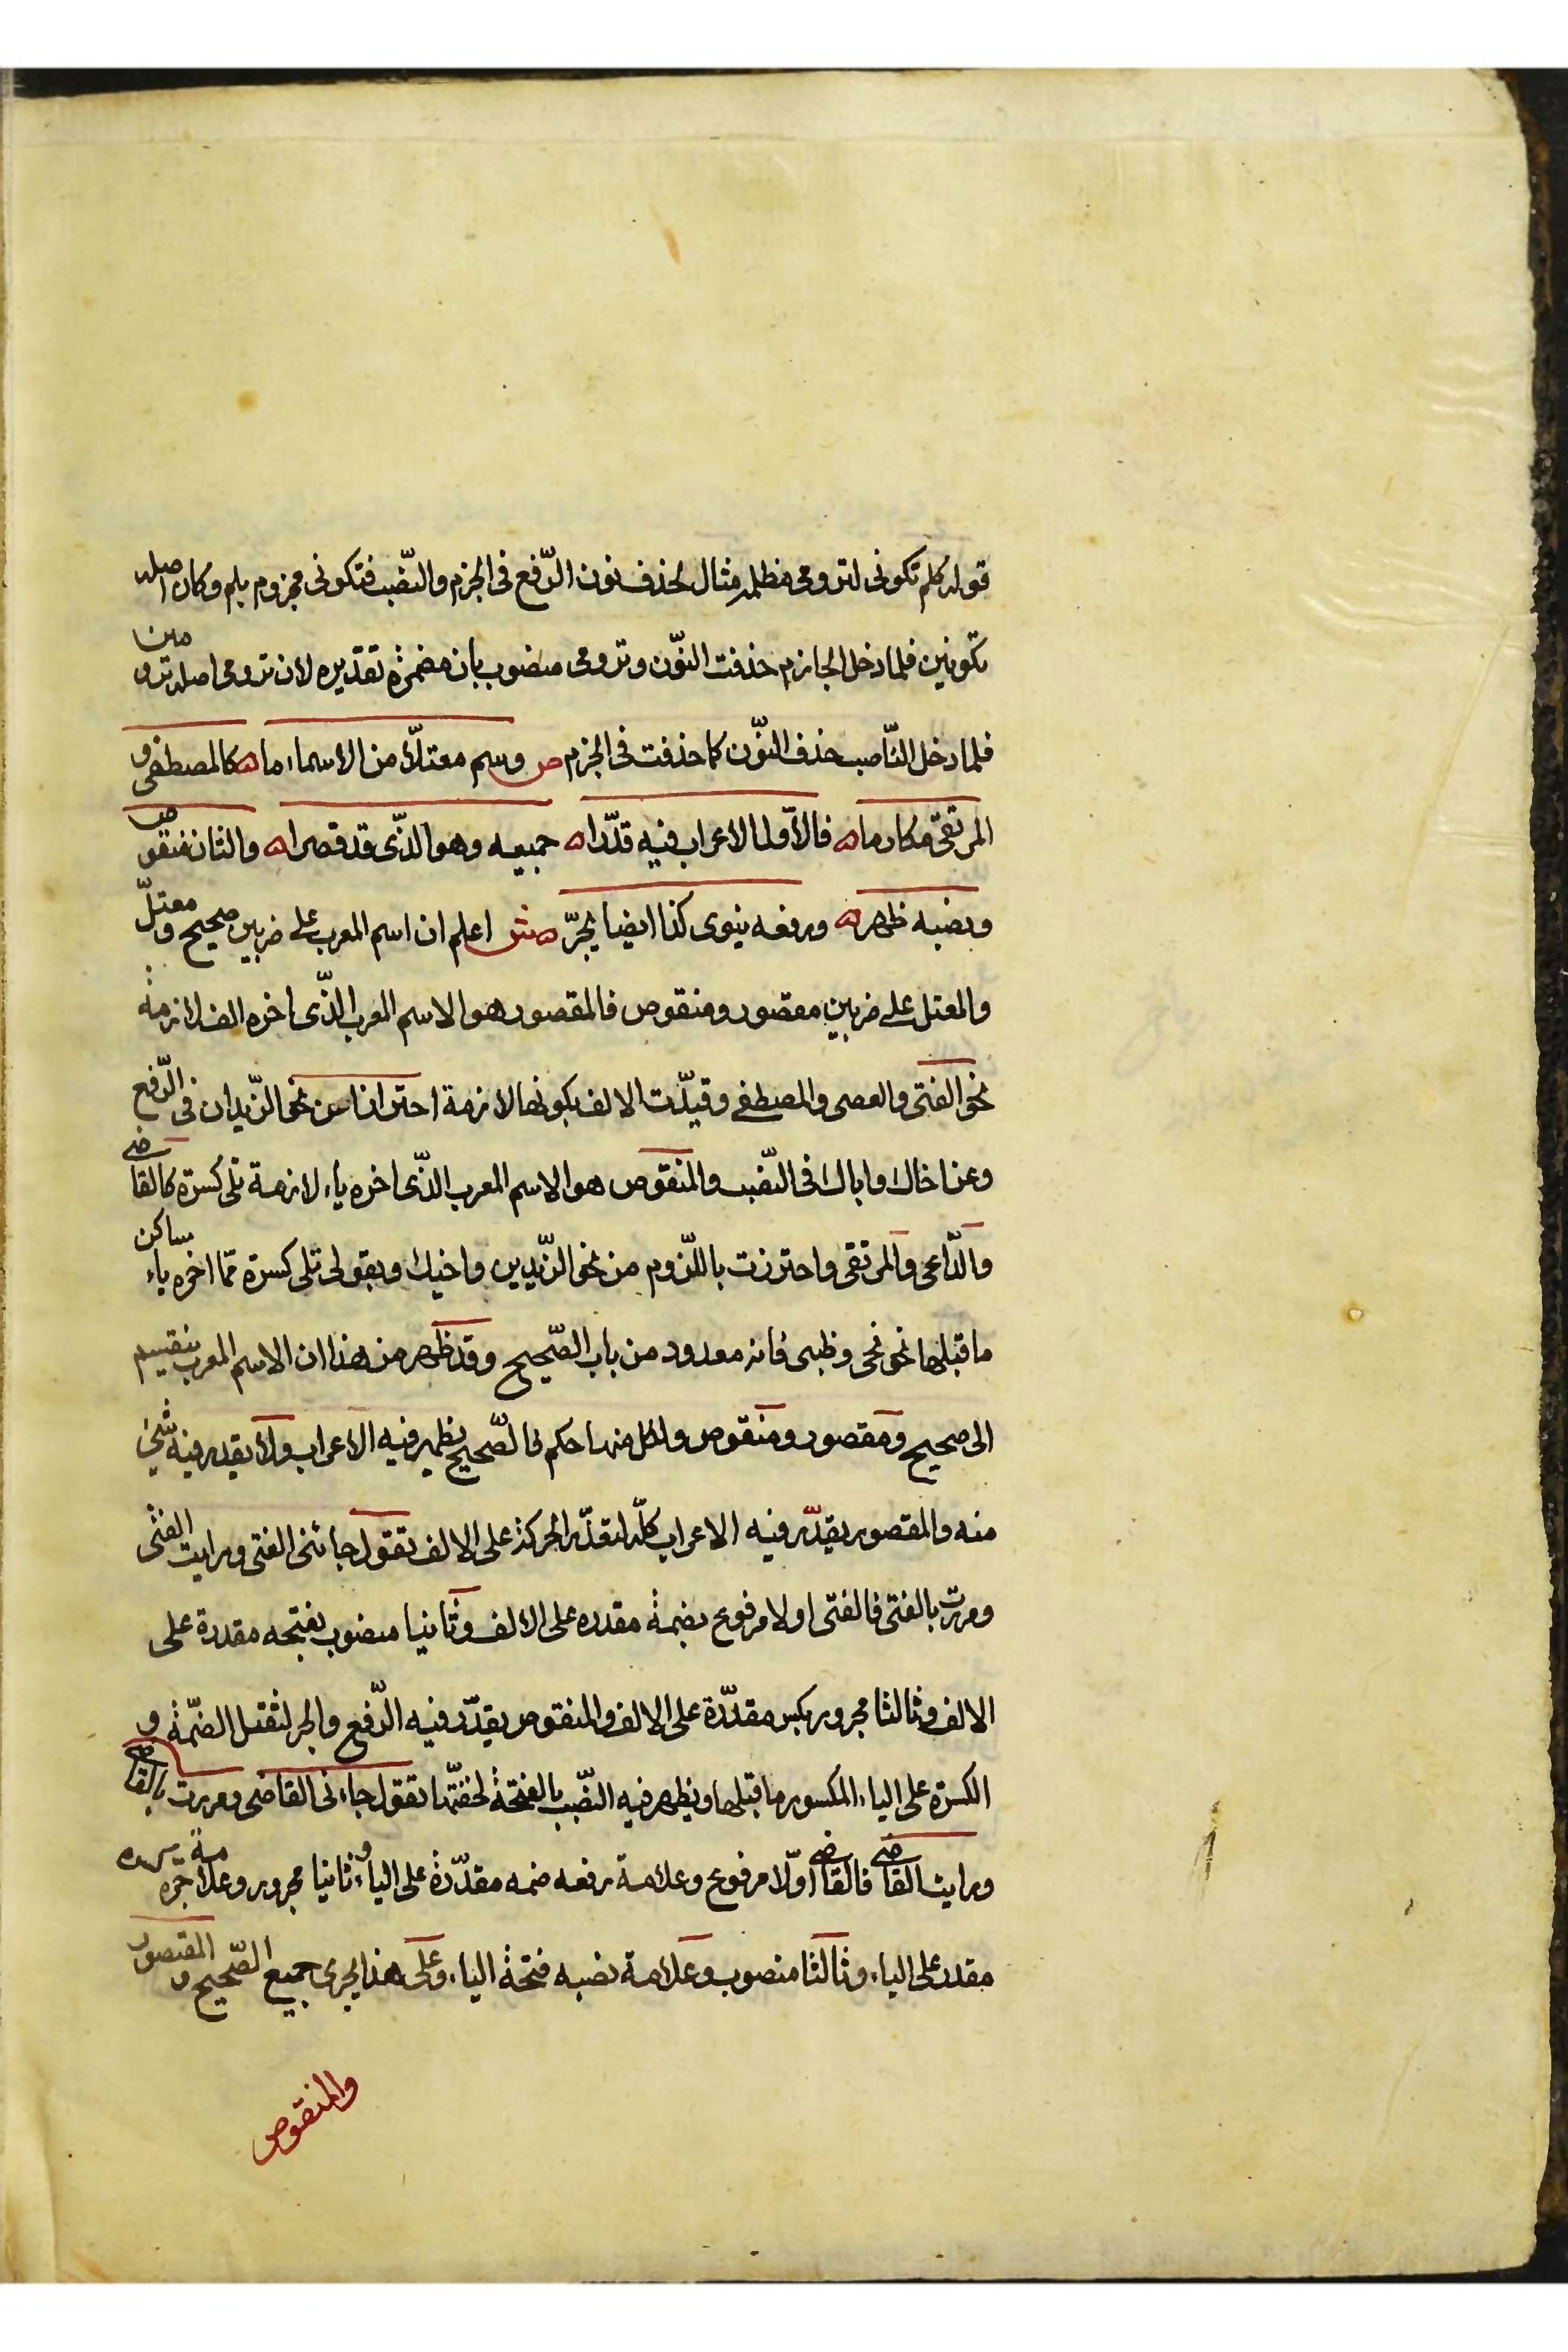 قوله كلم تكونى لترومى مظلمه مثال لحذف نون الرّفع فى الجزم والنّصب فتكونى مجزوم بلم وكان اصله
تكونين فلما دخل الجازم حذفت النّون وترومى منصوب بان مضمرة تقديره لان ترومى اصله ترومين
فلما دخل النّاصب حذف النّون كما حذفت فى الجزم ص وسم معتلّا من الاسماء ما ه كالمصطفى و
المرتقى مكارما ه فالاوّل الاعراب فيه قدّرا ه جميعه وهو الذّى قد قصرا ه والثان منقوص
ونصبه ظهر ه ورفعه ينوى كذا ايضا يجرّ ه ش اعلم ان اسم المعرب على ضربين صحيح ومعتلّ
والمعتل على ضربين مقصور ومنقوص فالمقصور هو الاسم المعرب الذّى اخره الف لازمة
نحو الفتى والعصى والمصطفى وقيدّت الالف بكونها لازمة احترازا من نحو الزّيدان فى الرّفع
وعن اخاك واباك فى النّصب والمنقوص هو الاسم المعرب الذّى اخره ياء لازمة تلى كسرة كالقاضى
والدّاعى والمرتقى واحترزت باللّزوم من نحو الزّيدين واخيك وبقولى تلى كسرة ممّا اخره ياء ساكن
ما قبلها نحو نحى وظبى فانه معدود من باب الصّحيح وقد ظهر من هذا ان الاسم المعرب ينقسيم
الى صحيح ومقصور ومنقوص ولكل منها حكم فالصّحيح يظهر فيه الاعراب ولا يقدر فيه شئ
منه والمقصور يقدّر فيه الاعراب كلّه لتقدّر الحركة على الالف تقول جائنى الفتى ورايت الفتى
ومررت بالفتى فالفتى اولا مرفوع بضمة مقدره على الالف وثانيا منصوب بفتحه مقدرة على
الالف وثالثا مجرور بكسر مقدّرة على الالف والمنقوص يقدّر فيه الرّفع والجر لثقل الضمّة و
الكسرة على الياء المكسور ما قبلها ويظهر فيه النصّب بالفتحة لخفتّها تقول جاءنى القاضى ومررت بالقاضى
ورايت القاضى فالقاضى اوّلا مرفوع وعلامة رفعه ضمه مقدّرة على الياء وثانيا مجرور وعلامة جرّه كسره
مقدر على الياء وثالثا منصوب وعلامة نصبه فتحة الياء وعلى هذا يجرى جميع الصّحيح والمقصور
والمنقوص